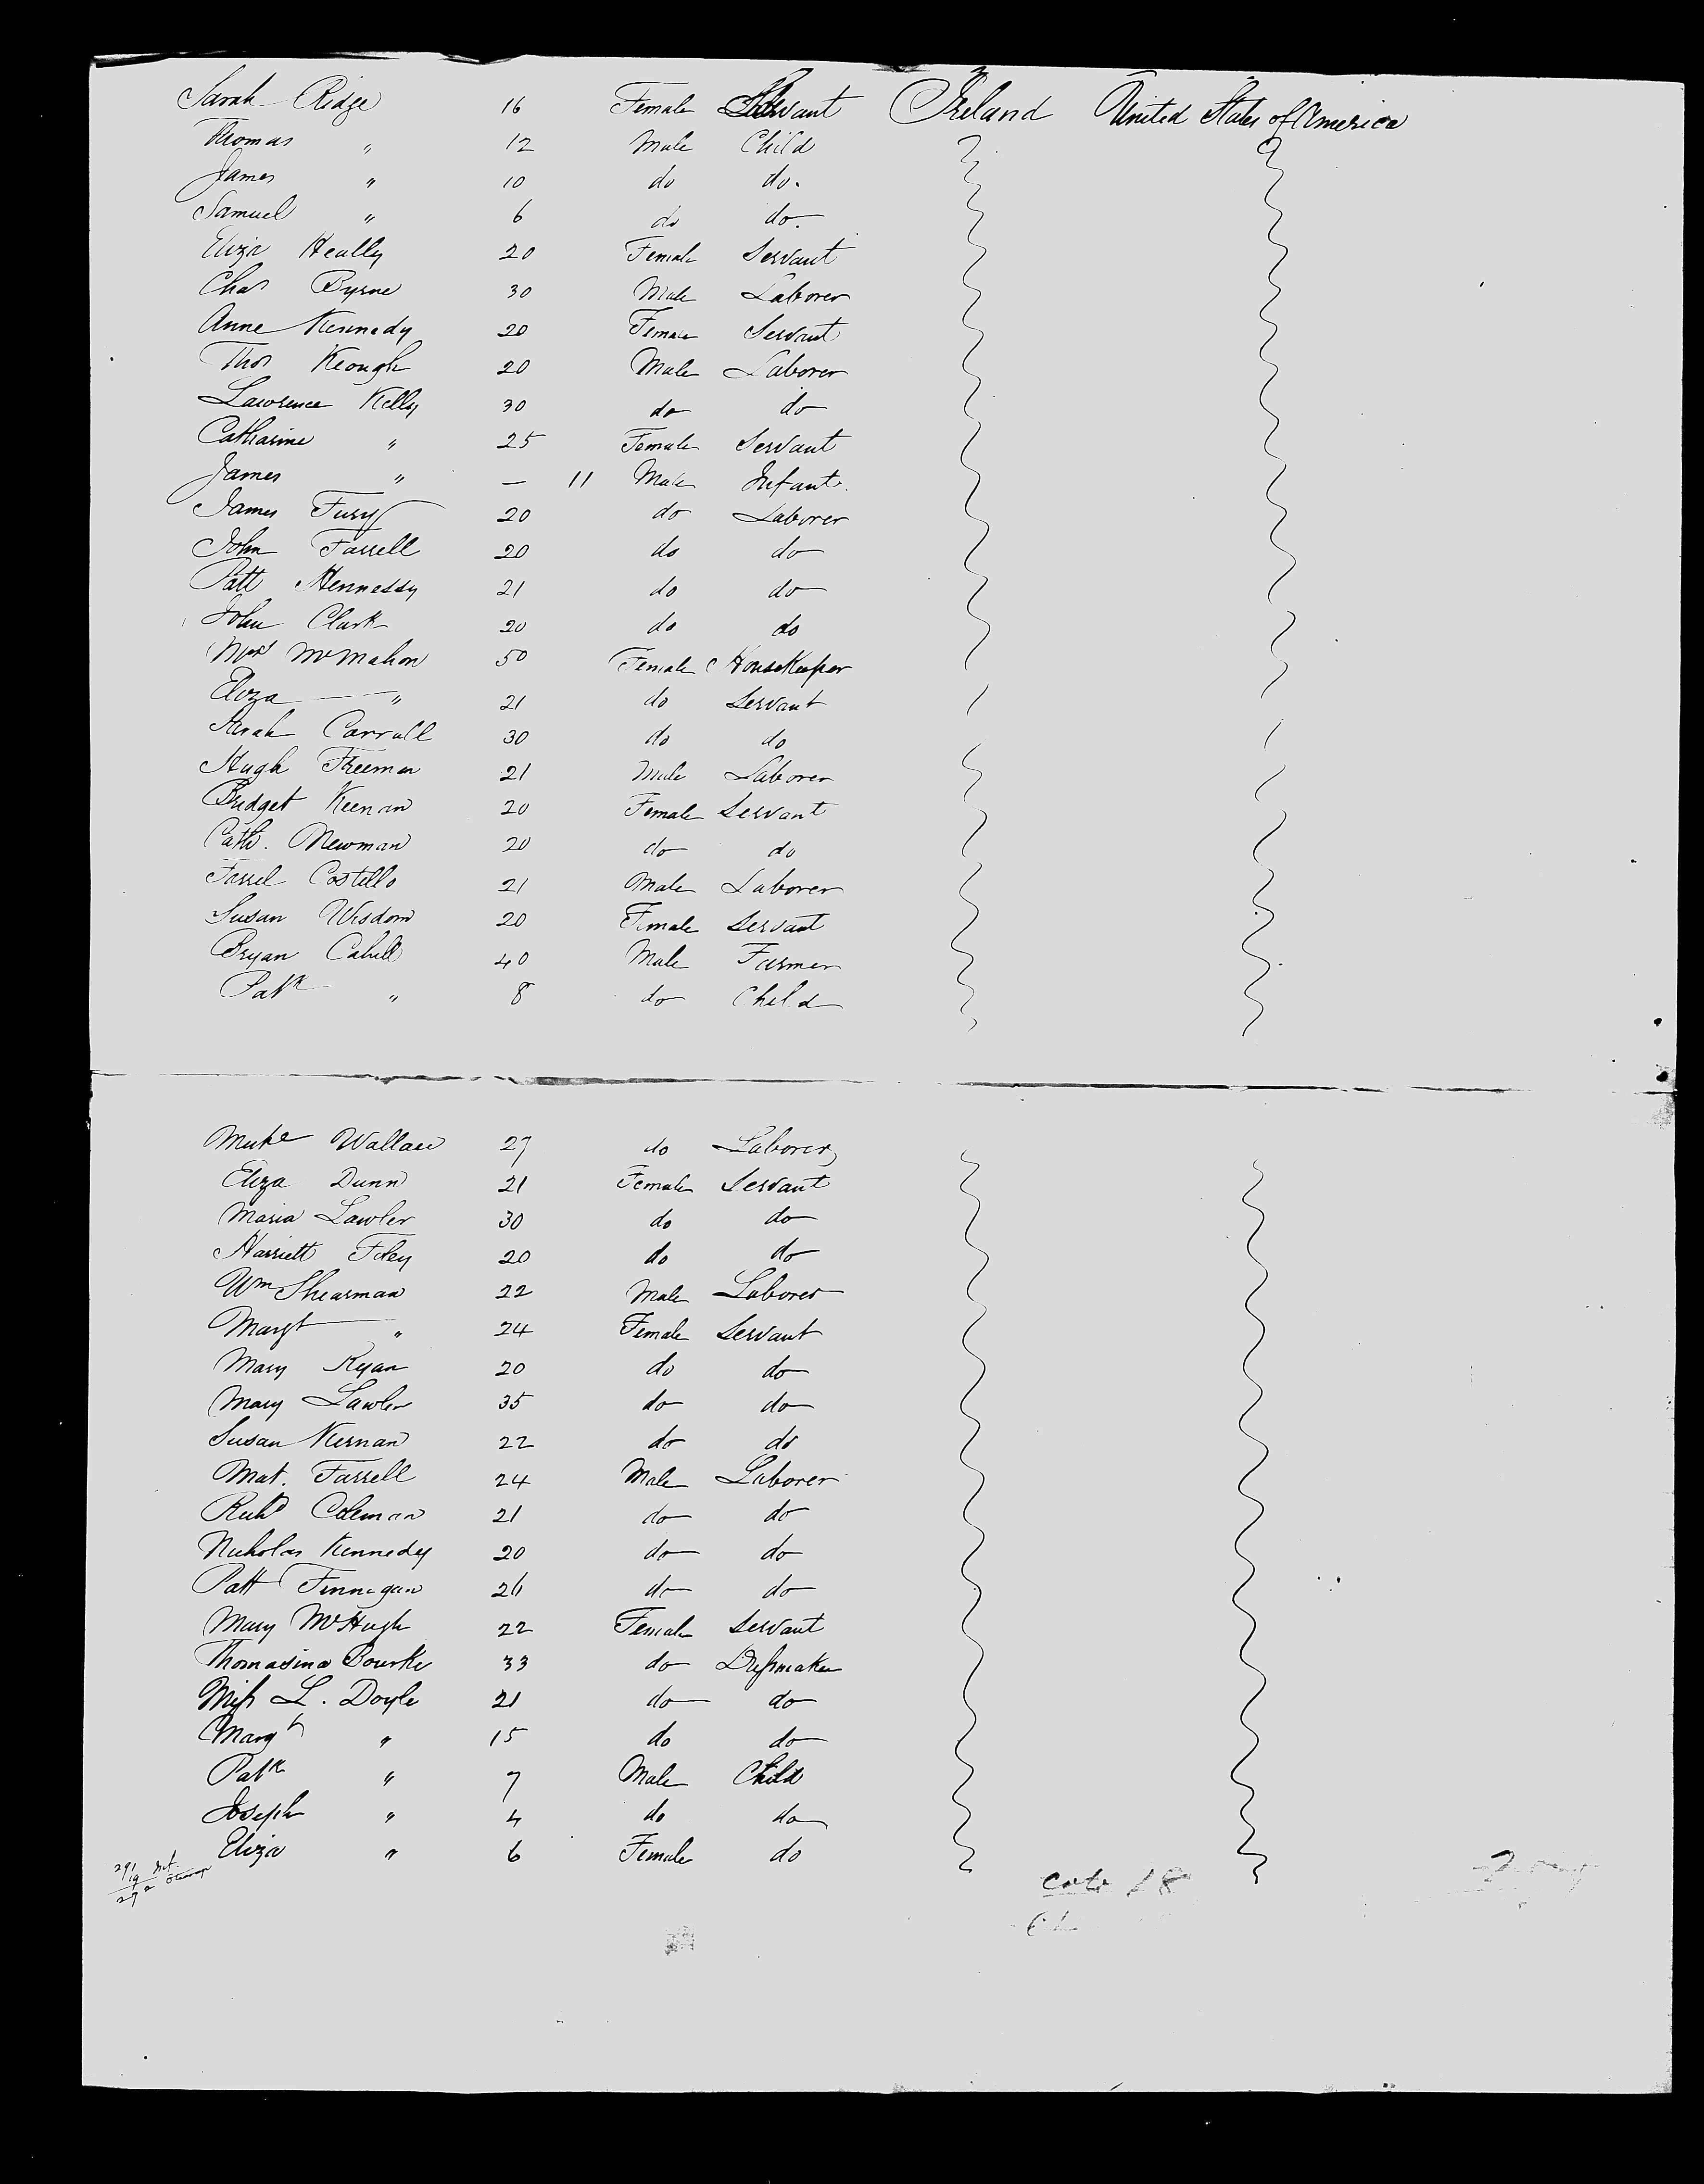 Sarah Ridge 16 Female Servant Ireland United States of America
Thomas " 12 Male Child
James " 10 do do.
Samuel " 6 do do.
Eliza Heally 20 Female Servant
Chas Byrne 30 Male Laborer
Anne Kennedy 20 Female Servant
Thos Keough 20 Male Laborer
Lawrence Kelly 30 do do
Catharine " 25 Female Servant
James " — 11 Male Infant.
James Fury 20 do Laborer
John Farrell 20 do do
Patt Hennessy 21 do do
John Clark 20 do do
Mrs McMahon 50 Female HouseKeeper
Eliza " 21 do Servant
Sarah Carroll 30 do do
Hugh Freeman 21 Male Laborer
Bridget Keenan 20 Female Servant
Cath. Newman 20 do do
Farrel Costello 21 Male Laborer
Susan Wisdom 20 Female Servant
Bryan Cahill 40 Male Farmer
Patk " 8 do Child
Wallace 27 do Laborer
Eliza Dunn 21 Female Servant
Maria Lawler 30 do do
Harriett Foley 20 do do
Wm Shearman 22 Male Laborer
Margt " 24 Female Servant
Mary Ryan 20 do do
Mary Lawler 35 do do
Susan Kiernan 22 do do
Mat. Farrell 24 Male Laborer
Richd Coleman 21 do do
Nicholas Kennedy 20 do do
Patt Finnegan 26 do do
Mary McHugh 22 Female Servant
Thomasina Bourke 33 do Dressmaker
Miss L. Doyle 21 do do
Margt " 15 do do
Patk " 7 Male Child
Joseph " 4 do do
Eliza " 6 Female do
18